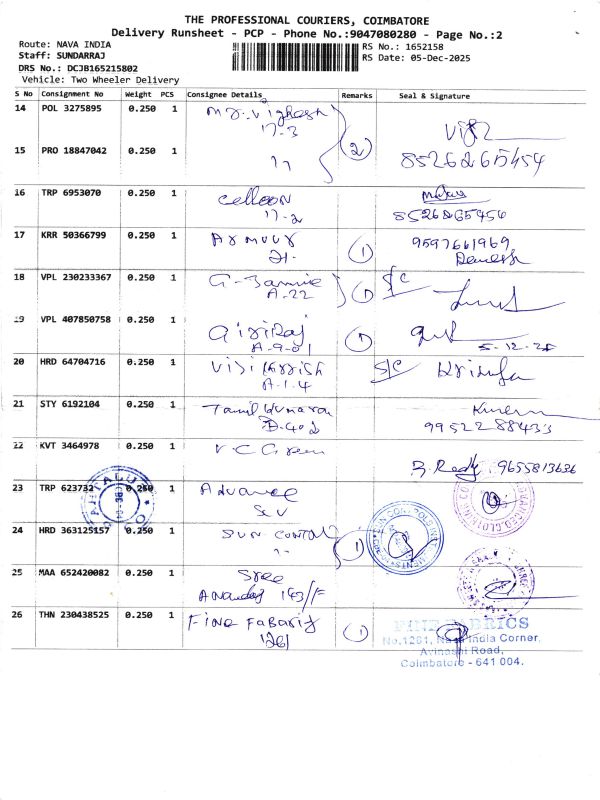 THE PROFESSIONAL COURIERS, COIMBATORE
Delivery Runsheet - PCP - Phone No.:9047080280 - Page No.:2
Route: NAVA INDIA
Staff: SUNDARRAJ
DRS No.: DCJB165215802
Vehicle: Two Wheeler Delivery
RS No.: 1652158
RS Date: 05-Dec-2025
S No Consignment No Weight PCS Consignee Details Remarks Seal & Signature
14 POL 3275895 0.250 1 Mr. Vighesh
17-3
15 PRO 18847042 0.250 1 11 2 8526265454
16 TRP 6953070 0.250 1 Celloon
17-2 8526265454
17 KRR 50366799 0.250 1 Armour 1 9597661969
21-
18 VPL 230233367 0.250 1 1 S/C
A-22
19 VPL 407850758 0.250 1 Giriraj 1
A-9-01 5-12-25
20 HRD 64704716 0.250 1 S/C
A-1-4
21 STY 6192104 0.250 1 Tamil Kumaran
D-402 9952288433
22 KVT 3464978 0.250 1 V C Green
9655813686
23 TRP 623732 0.250 1 Advance
24 HRD 363125157 0.250 1 SUN CONTROL 1
25 MAA 652420082 0.250 1 Sree
143/F
26 THN 230438525 0.250 1 Fine Fabaris 1
1261
FINE FABRICS
No.1261, Nava India Corner,
Avinashi Road,
Coimbatore - 641 004.